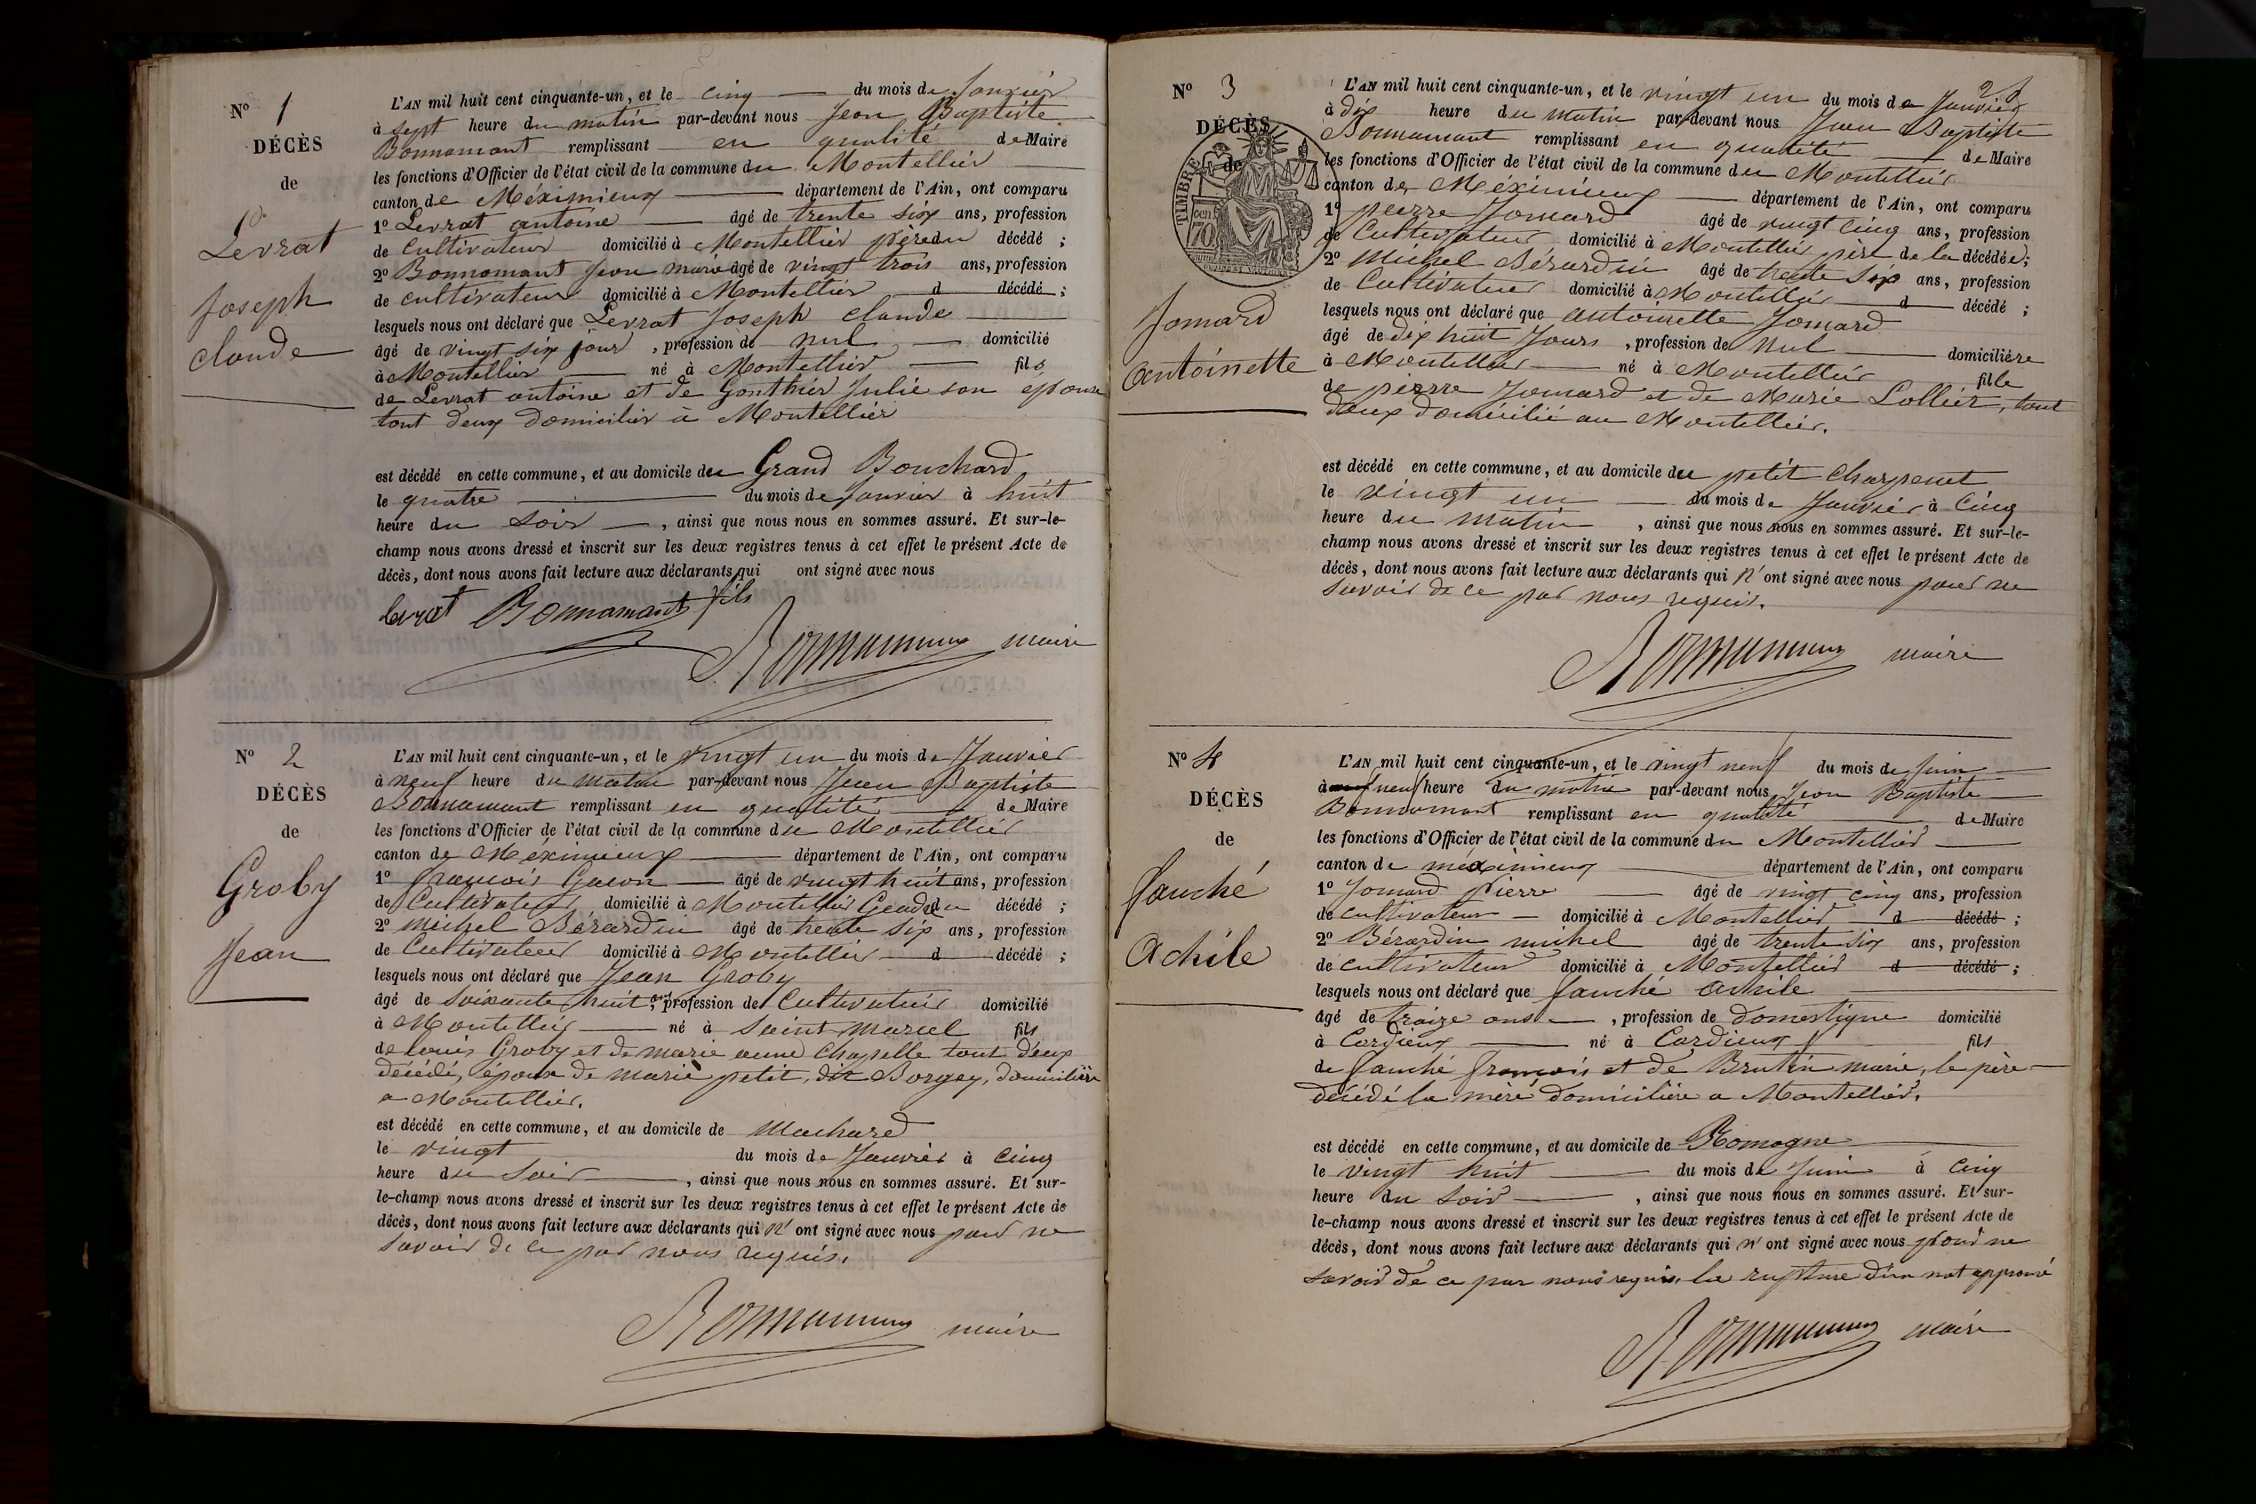 N° 1
DÉCÈS
de
Levrat
Joseph
claude
L'AN mil huit cent cinquante-un, et le cinq du mois de Janvier
à sept heure du matin par-devant nous Jean Baptiste
Bonnamant remplissant en qualité de Maire
les fonctions d'Officier de l'état civil de la commune du Montellier
canton de Méximieux département de l'Ain, ont comparu
1° Levrat antoine âgé de trente six ans, profession
de cultivateur domicilié à Montellier père du décédé ;
2° Bonnamant Jean marie âgé de vingt trois ans, profession
de cultivateur domicilié à Montellier d décédé ;
lesquels nous ont déclaré que Levrat Joseph claude
âgé de vingt six jour , profession de nul domicilié
à Montellier né à Montellier fils
de Levrat antoine et de Gonthier Julie son épouse
tout deux domicilier à Montellier
est décédé en cette commune, et au domicile du Grand Bouchard
le quatre du mois de Janvier à huit
heure du soir , ainsi que nous nous en sommes assuré. Et sur-le-
champ nous avons dressé et inscrit sur les deux registres tenus à cet effet le présent Acte de
décès, dont nous avons fait lecture aux déclarants qui ont signé avec nous
levrat Bonnamant fils
Bonnamant maire
N° 2
DÉCÈS
de
Groby
Jean
L'AN mil huit cent cinquante-un, et le vingt un du mois de Janvier
à neuf heure du matin par-devant nous Jean Baptiste
Bonnamant remplissant en qualité de Maire
les fonctions d'Officier de l'état civil de la commune du Montellier
canton de Méximieux département de l'Ain, ont comparu
1° françois Gacon âgé de vingt huit ans, profession
de Cultivateur domicilié à Montellier Gendre du décédé ;
2° Michel Bérardin âgé de trente six ans, profession
de Cultivateur domicilié à Montellier d décédé ;
lesquels nous ont déclaré que Jean Groby
âgé de soixante huit ans, profession de Cultivateur domicilié
à Montellier né à saint Marcel fils
de louis Groby et de marie anne Chapelle tout deux
décédé, époux de marie petit, dit Borgey, domicilière
a Montellier.
est décédé en cette commune, et au domicile de Machard
le vingt du mois de Janvier à cinq
heure du Soir , ainsi que nous nous en sommes assuré. Et sur-
le-champ nous avons dressé et inscrit sur les deux registres tenus à cet effet le présent Acte de
décès, dont nous avons fait lecture aux déclarants qui n' ont signé avec nous pour ne
savoir de ce par nous requis.
Bonnamant maire
N° 3
DÉCÈS
de
TIMBRE
70
Jomard
antoinette
L'AN mil huit cent cinquante-un, et le vingt un du mois de Janvier
à dix heure du matin par-devant nous Jean Baptiste
Bonnamant remplissant en qualité de Maire
les fonctions d'Officier de l'état civil de la commune du Montellier
canton de Méximieux département de l'Ain, ont comparu
1° pierre Jomard âgé de vingt cinq ans, profession
de Cultivateur domicilié à Montellier père de la décédée ;
2° Michel Bérardin âgé de trente six ans, profession
de Cultivateur domicilié à Montellier d décédé ;
lesquels nous ont déclaré que antoinette Jomard
âgé de dix huit Jours , profession de Nul domicilière
à Montellier né à Montellier fille
de pierre Jomard et de Marie Lollier, tout
deux domicilié au Montellier.
est décédé en cette commune, et au domicile du petit charpenet
le vingt un du mois de Janvier à Cinq
heure du matin , ainsi que nous nous en sommes assuré. Et sur-le-
champ nous avons dressé et inscrit sur les deux registres tenus à cet effet le présent Acte de
décès, dont nous avons fait lecture aux déclarants qui n' ont signé avec nous pour ne
savoir de ce par nous requis.
Bonnamant maire
N° 4
DÉCÈS
de
fauché
Achile
L'AN mil huit cent cinquante-un, et le vingt neuf du mois de Juin
à neuf heure du matin par-devant nous Jean Baptiste
Bonnamant remplissant en qualité de Maire
les fonctions d'Officier de l'état civil de la commune du Montellier
canton de méximieux département de l'Ain, ont comparu
1° Jomard Pierre âgé de vingt cinq ans, profession
de cultivateur domicilié à Montellier d décédé ;
2° Bérardin michel âgé de trente six ans, profession
de cultivateur domicilié à Montellier d décédé ;
lesquels nous ont déclaré que fauché achile
âgé de traize ans , profession de domestique domicilié
à Cordieux né à Cordieux fils
de fauché françois et de Brutin marie, le père
décédé la mère domicilière a Montellier.
est décédé en cette commune, et au domicile de Romagne
le vingt huit du mois de Juin à cinq
heure du soir , ainsi que nous nous en sommes assuré. Et sur-
le-champ nous avons dressé et inscrit sur les deux registres tenus à cet effet le présent Acte de
décès, dont nous avons fait lecture aux déclarants qui n' ont signé avec nous pour ne
savoir de ce par nous requis, la rupture d'un mot approuvé
Bonnamant maire